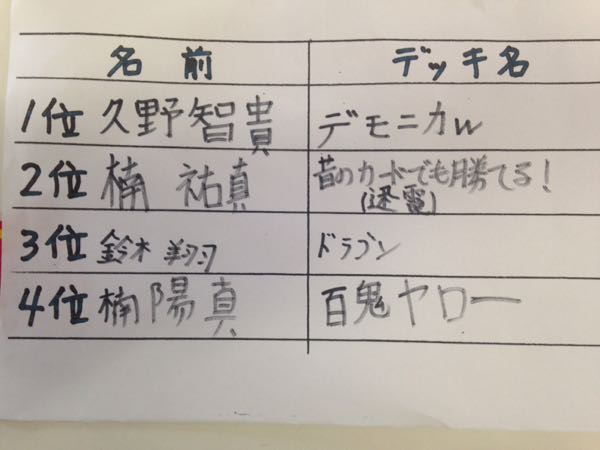 名前 デッキ名
1位 久野智貴 デモニカw
2位 楠 祐真 昔のカードでも勝てる!
(迅雷)
3位 鈴木 翔 ドラゴン
4位 楠陽真 百鬼ヤロー